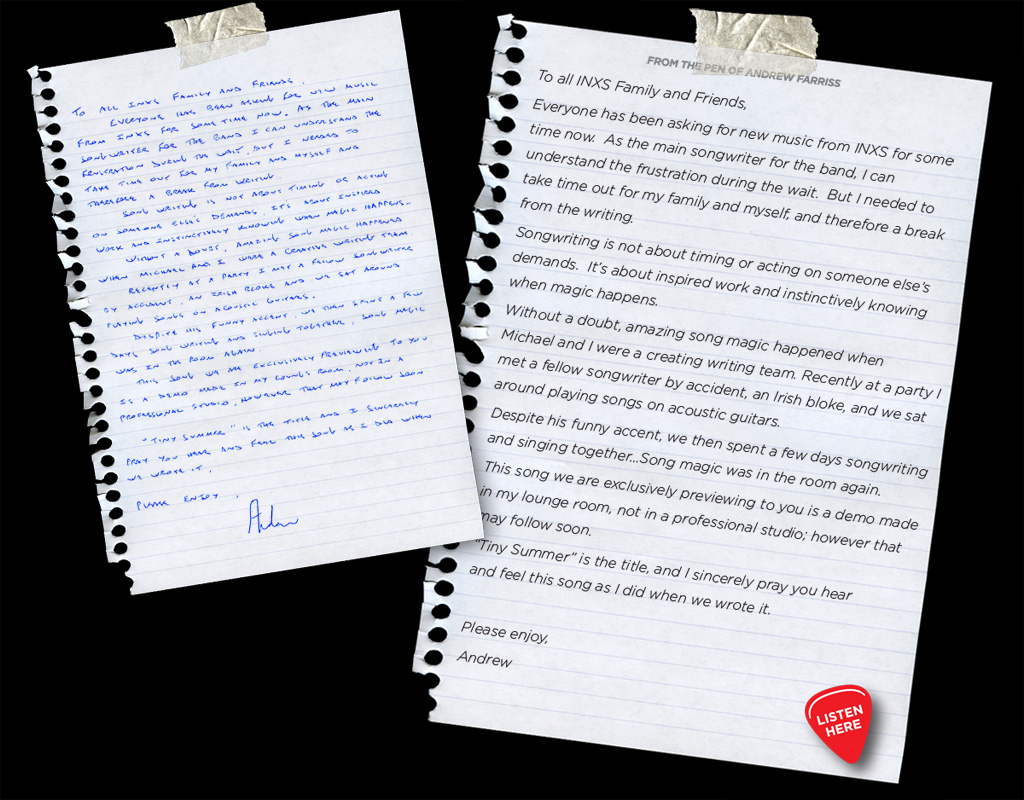 TO ALL INXS FAMILY AND FRIENDS.
EVERYONE HAS BEEN ASKING FOR NEW MUSIC
FROM INXS FOR SOME TIME NOW. AS THE MAIN
SONGWRITER FOR THE BAND I CAN UNDERSTAND THE
FRUSTRATION DURING THE WAIT. BUT I NEEDED TO
TAKE TIME OUT FOR MY FAMILY AND MYSELF AND
THEREFORE A BREAK FROM WRITING.
SONG WRITING IS NOT ABOUT TIMING OR ACTING
ON SOMEONE ELSE'S DEMANDS. IT'S ABOUT INSPIRED
WORK AND INSTINCTIVELY KNOWING WHEN MAGIC HAPPENS.
WITHOUT A DOUBT, AMAZING SONG MAGIC HAPPENED
WHEN MICHAEL AND I WERE A CREATIVE WRITING TEAM
RECENTLY AT A PARTY I MET A FELLOW SONGWRITER
BY ACCIDENT, AN IRISH BLOKE AND WE SAT AROUND
PLAYING SONGS ON ACOUSTIC GUITARS.
DESPITE HIS FUNNY ACCENT, WE THEN SPENT A FEW
DAYS SONG WRITING AND SINGING TOGETHER, SONG MAGIC
WAS IN THE ROOM AGAIN.
THIS SONG WE ARE EXCLUSIVELY PREVIEWING TO YOU
IS A DEMO MADE IN MY LOUNGE ROOM, NOT IN A
PROFESSIONAL STUDIO, HOWEVER THAT MAY FOLLOW SOON
"TINY SUMMER" IS THE TITLE AND I SINCERELY
PRAY YOU HEAR AND FEEL THIS SONG AS I DID WHEN
WE WROTE IT.
PLEASE ENJOY,
Andrew
FROM THE PEN OF ANDREW FARRISS
To all INXS Family and Friends,
Everyone has been asking for new music from INXS for some
time now. As the main songwriter for the band, I can
understand the frustration during the wait. But I needed to
take time out for my family and myself, and therefore a break
from the writing.
Songwriting is not about timing or acting on someone else's
demands. It's about inspired work and instinctively knowing
when magic happens.
Without a doubt, amazing song magic happened when
Michael and I were a creating writing team. Recently at a party I
met a fellow songwriter by accident, an Irish bloke, and we sat
around playing songs on acoustic guitars.
Despite his funny accent, we then spent a few days songwriting
and singing together...Song magic was in the room again.
This song we are exclusively previewing to you is a demo made
in my lounge room, not in a professional studio; however that
may follow soon.
"Tiny Summer" is the title, and I sincerely pray you hear
and feel this song as I did when we wrote it.
Please enjoy,
Andrew
LISTEN
HERE